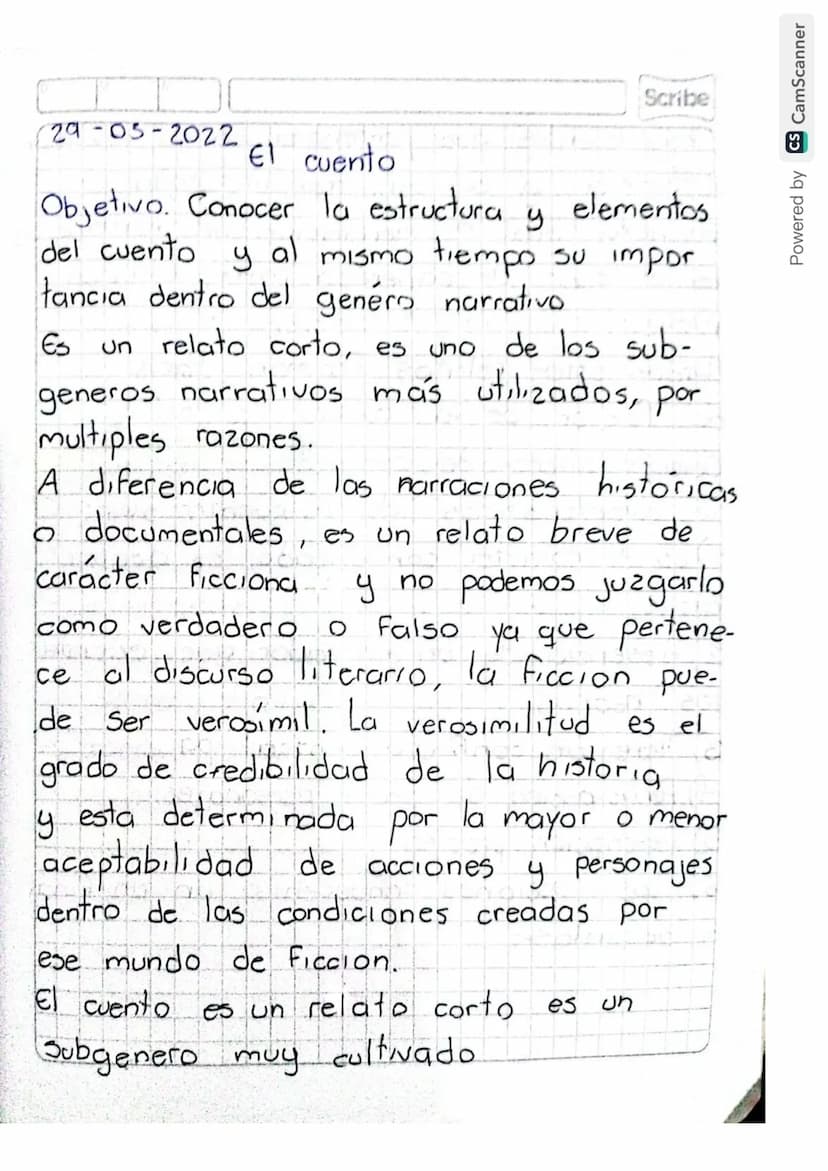 Scribe
29-05-2022
El cuento
Objetivo. Conocer la estructura y elementos
del cuento y al mismo tiempo su impor
tancia dentro del genéro narrativo
Es un relato corto, es uno de los sub-
generos narrativos más utilizados, por
multiples razones.
A diferencia de las narraciones históricas
o documentales, es un relato breve de
carácter ficciona y no podemos juzgarlo
como verdadero o falso ya que pertene-
ce al discurso literario, la ficcion pue-
de ser verosímil. La verosimilitud es el
grado de credibilidad de la historia
y esta determinada por la mayor o menor
aceptabilidad de acciones y personajes
dentro de las condiciones creadas por
ese mundo de ficcion.
El cuento es un relato corto es un
subgenero muy cultivado
Powered by CS CamScanner